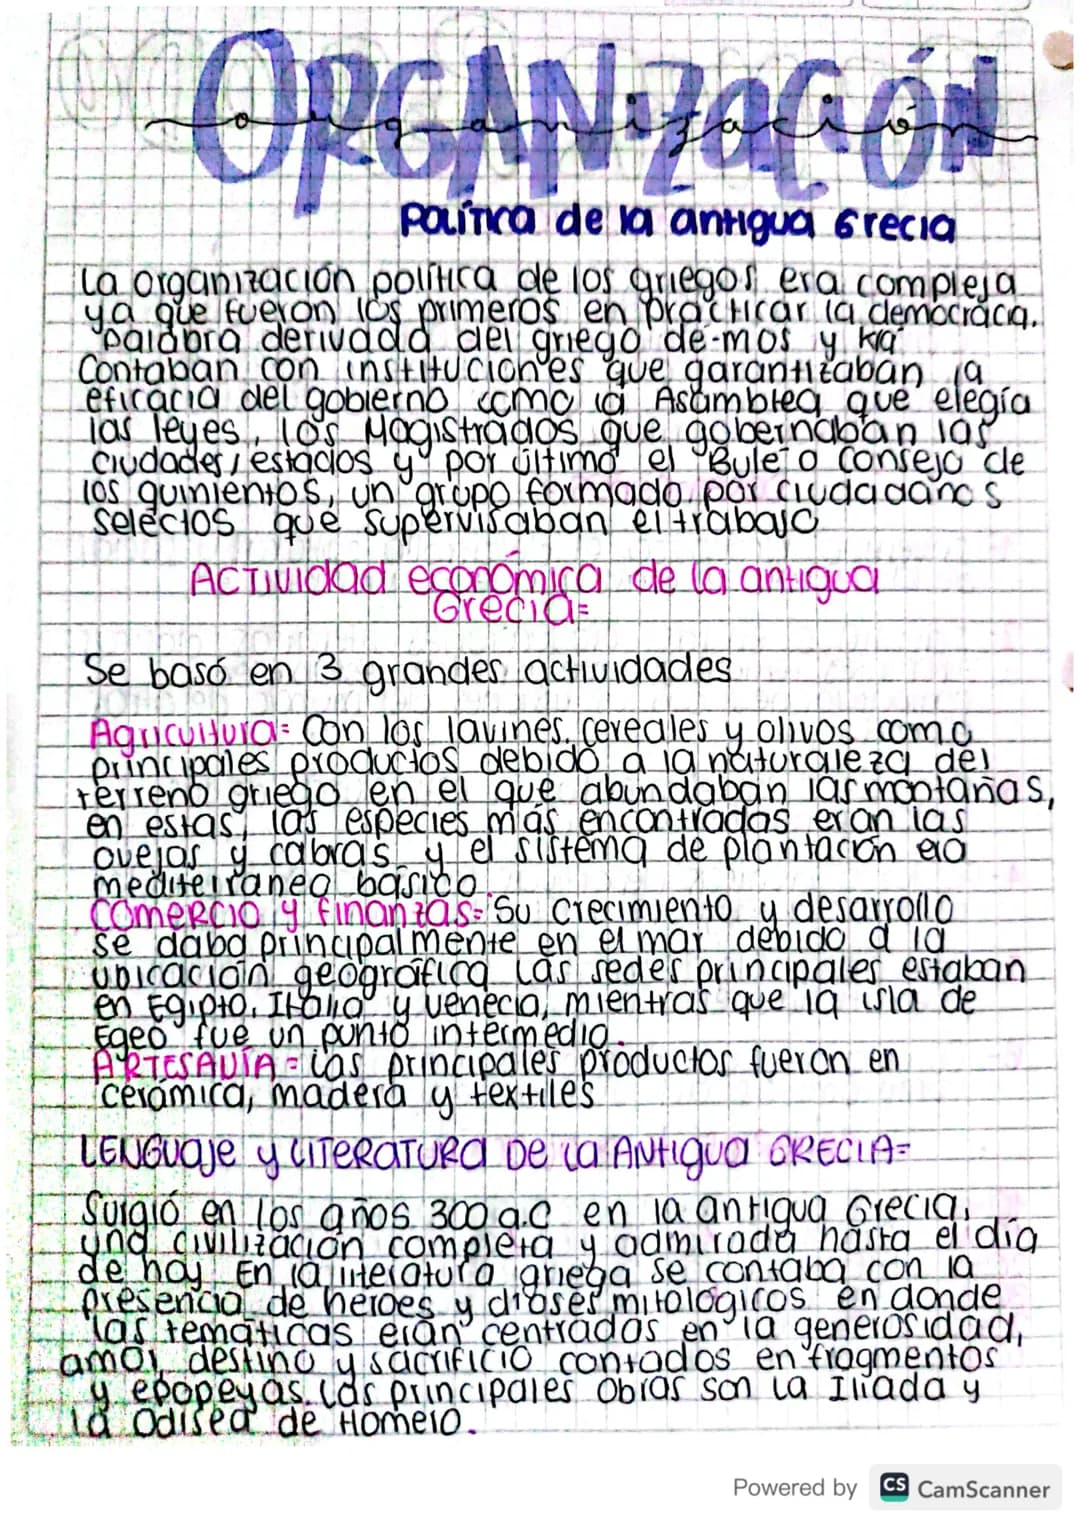 ORGANIZACIÓN
organización
Política de la antigua Grecia
La organización política de los griegos era compleja
ya que fueron los primeros en practicar la democraca.
palabra derivada del griego dé-mos y kra
Contaban con instituciones que garantizaban la
eficacia del gobierno como la Asamblea que elegía
las leyes, los Magistrados que gobernaban las
ciudades, estados y por último el "Bule" o Consejo de
los quinientos, un grupo formado por ciudadanos
selectos que supervisaban el trabajo
Actividad económica de la antigua
Grecia=
Se basó en 3 grandes actividades
Agricultura= Con los lavines, cereales y olivos como
principales productos debido a la naturaleza del
terreno griego en el que abundaban las montañas,
en estas, las especies más encontradas eran las
ovejas y cabras y el sistema de plantación era
mediterraneo básico.
Comercio y finanzas= Su crecimiento y desarrollo
se daba principalmente en el mar debido a la
ubicación geográfica Las sedes principales estaban
en Egipto, Italia y venecia, mientras que la isla de
Egeo fue un punto intermedio.
ARTESANÍA = Las principales productos fueron en
cerámica, madera y textiles
LENGUAje y LITERATURA DE La ANtigua GRECIA=
Surgió en los años 300 a.C en la antigua Grecia,
una civilización completa y admirada hasta el día
de hoy. En la literatura griega se contaba con la
presencia de heroes y dioses mitológicos en donde
las temáticas eran centradas en la generosidad,
amor, destino y sacrificio contados en fragmentos
y epopeyas. Las principales obras son La Ilíada y
La Odisea de Homero.
Powered by CS CamScanner